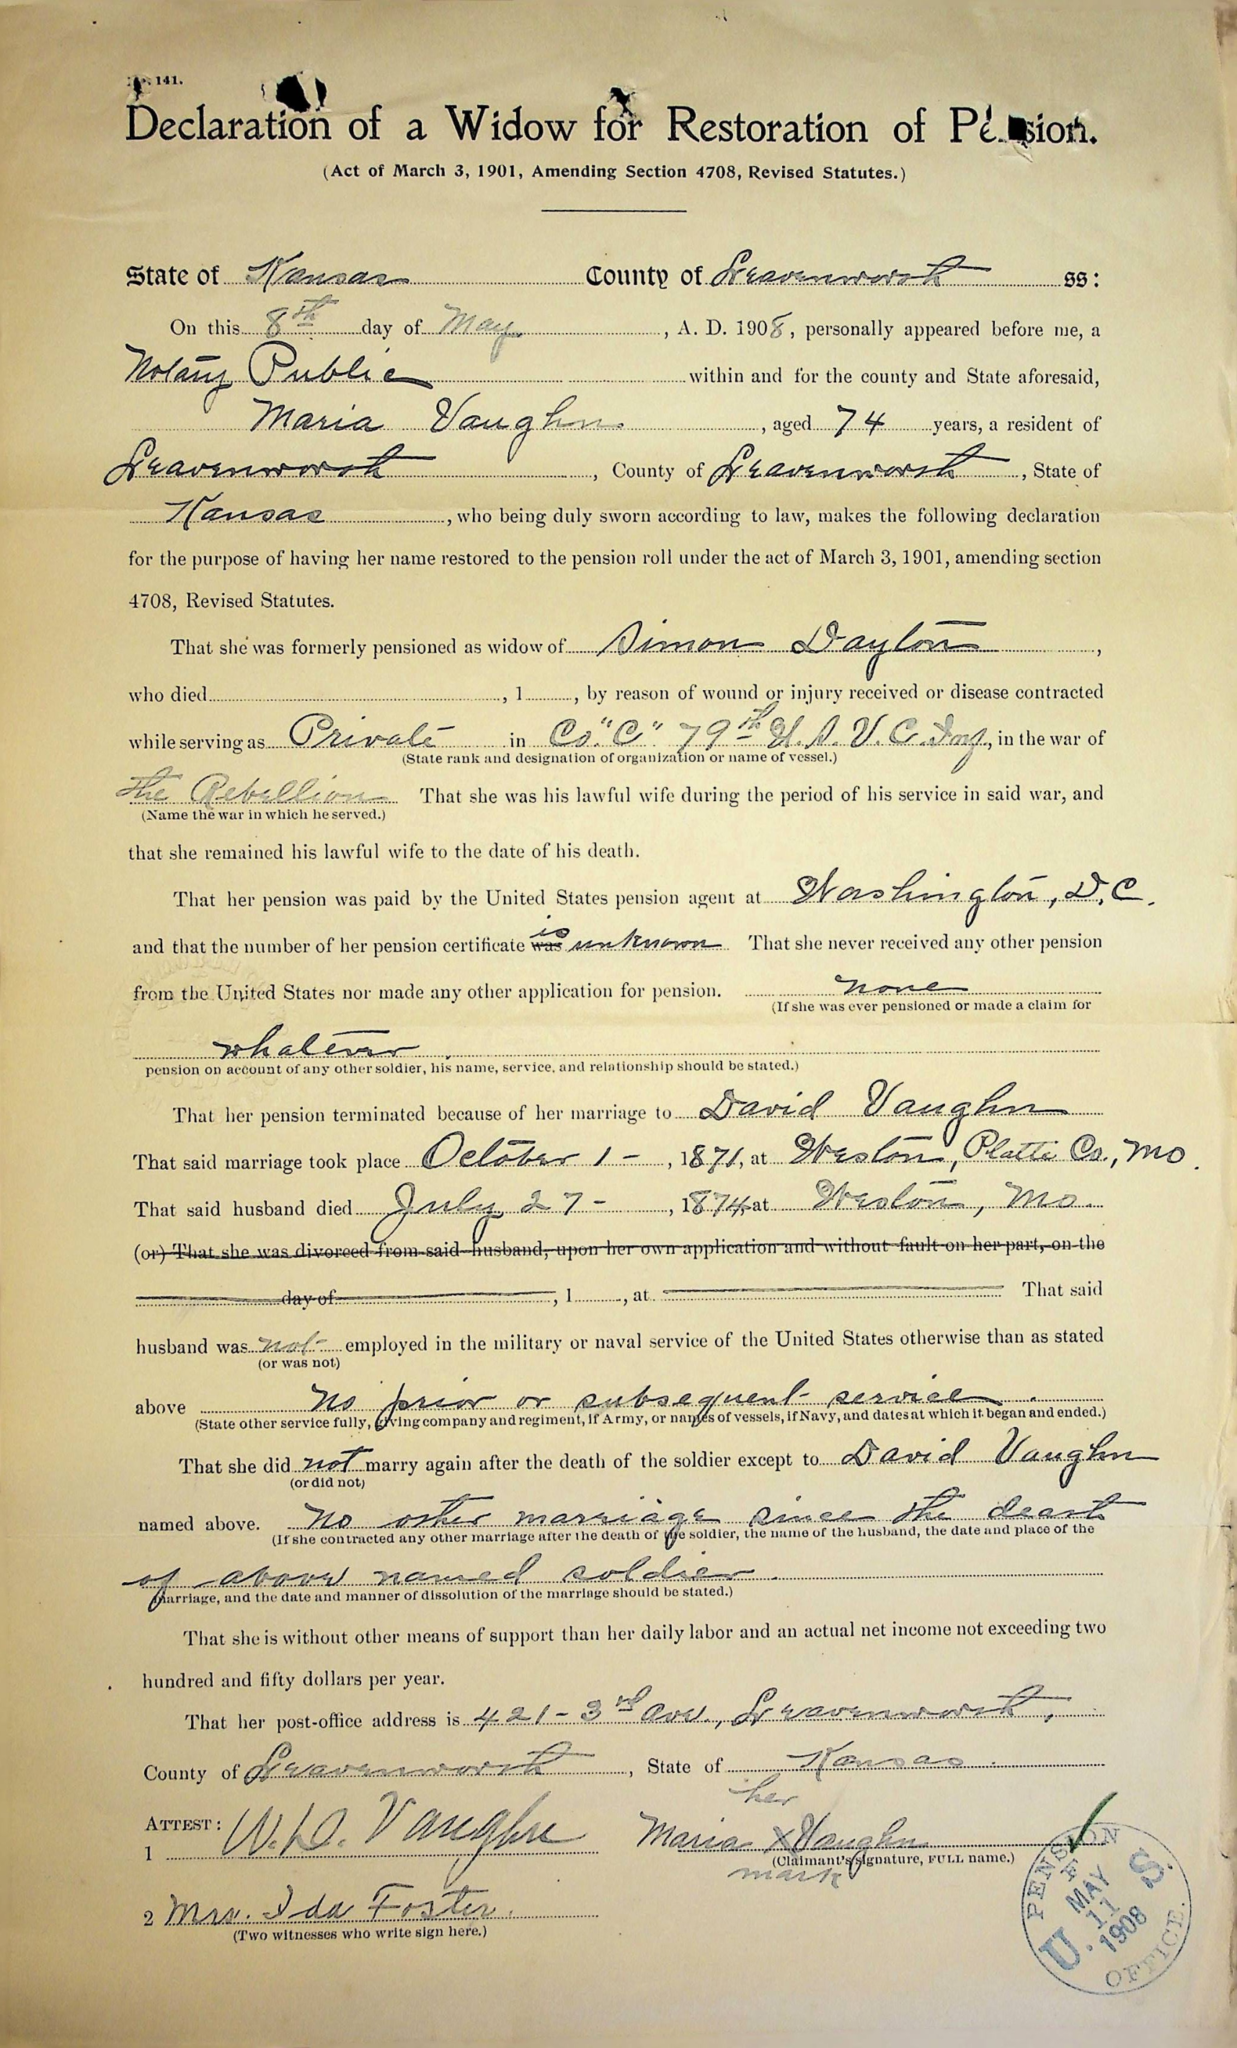 141.
Declaration of a Widow for Restoration of Pension.
(Act of March 3, 1901, Amending Section 4708, Revised Statutes.)
State of Kansas County of Leavenworth ss:
On this 8th day of May, A. D. 1908, personally appeared before me, a
Notary Public within and for the county and State aforesaid,
Maria Vaughn, aged 74 years, a resident of
Leavenworth, County of Leavenworth, State of
Kansas, who being duly sworn according to law, makes the following declaration
for the purpose of having her name restored to the pension roll under the act of March 3, 1901, amending section
4708, Revised Statutes.
That she was formerly pensioned as widow of Simon Dayton,
who died, 1, by reason of wound or injury received or disease contracted
while serving as Private in Co. "C" 79th U. S. V. C. Inf, in the war of
(State rank and designation of organization or name of vessel.)
the Rebellion That she was his lawful wife during the period of his service in said war, and
(Name the war in which he served.)
that she remained his lawful wife to the date of his death.
That her pension was paid by the United States pension agent at Washington, D. C.
is
and that the number of her pension certificate was unknown That she never received any other pension
from the United States nor made any other application for pension. none
(If she was ever pensioned or made a claim for
whatever.
pension on account of any other soldier, his name, service, and relationship should be stated.)
That her pension terminated because of her marriage to David Vaughn
That said marriage took place October 1 -, 1871, at Weston, Platte Co., Mo.
That said husband died July 27 -, 1874 at Weston, Mo.
(or) That she was divorced from said husband, upon her own application and without fault on her part, on the
day of, 1, at That said
husband was not employed in the military or naval service of the United States otherwise than as stated
(or was not)
above No prior or subsequent service.
(State other service fully, giving company and regiment, if Army, or names of vessels, if Navy, and dates at which it began and ended.)
That she did not marry again after the death of the soldier except to David Vaughn
(or did not)
named above. No other marriage since the death
(If she contracted any other marriage after the death of the soldier, the name of the husband, the date and place of the
of above named soldier.
marriage, and the date and manner of dissolution of the marriage should be stated.)
That she is without other means of support than her daily labor and an actual net income not exceeding two
hundred and fifty dollars per year.
That her post-office address is 421 - 3rd Ave., Leavenworth,
County of Leavenworth, State of Kansas.
her
ATTEST:
1 W. D. Vaughn Maria X Vaughn
(Claimant's signature, FULL name.)
mark
2 Mrs. Ida Foster.
(Two witnesses who write sign here.)
PENSION OFFICE.
U. S.
MAY
11
1908